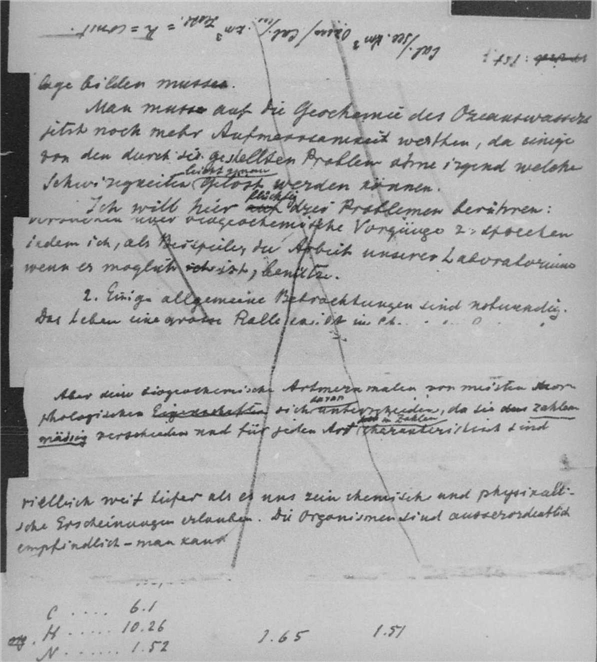 Cal./sec. km³ Ozean/Cal/sec. km³ = R = const.
lage bilden musse.
Man musse auf die Geochemie des Ozeanswassers
jetzt noch mehr Aufmerksamkeit werfen, da einige
von den durch sie gestellten Problem ohne irgend welche
Schwirigkeiten leicht genau gelöst werden können.
Ich will hier auf flüchtig drei Problemen berühren:
biogeochemische Vorgänge z sprechen
indem ich, als Beispiele, die Arbeit unserer Laboratoriums
wenn es moglich ist, benütze.
2. Einige allgemeine Betrachtungen sind notwendig.
Das Leben eine grosse Rolle
Aber biogeochemische von meisten mor-
phologischen Eigenschaften sich daran unterscheiden, da sie dem zahlen
mässig verschieden und für jeden Art charakteristisch sind
vielleich weit tiefer als es uns rein chemische und physikali-
sche Erscheinungen erlauben. Die Organismen sind ausserordentlich
empfindlich – man kann
C ..... 6.1
H ..... 10.26
N ..... 1.52 1.65 1.51